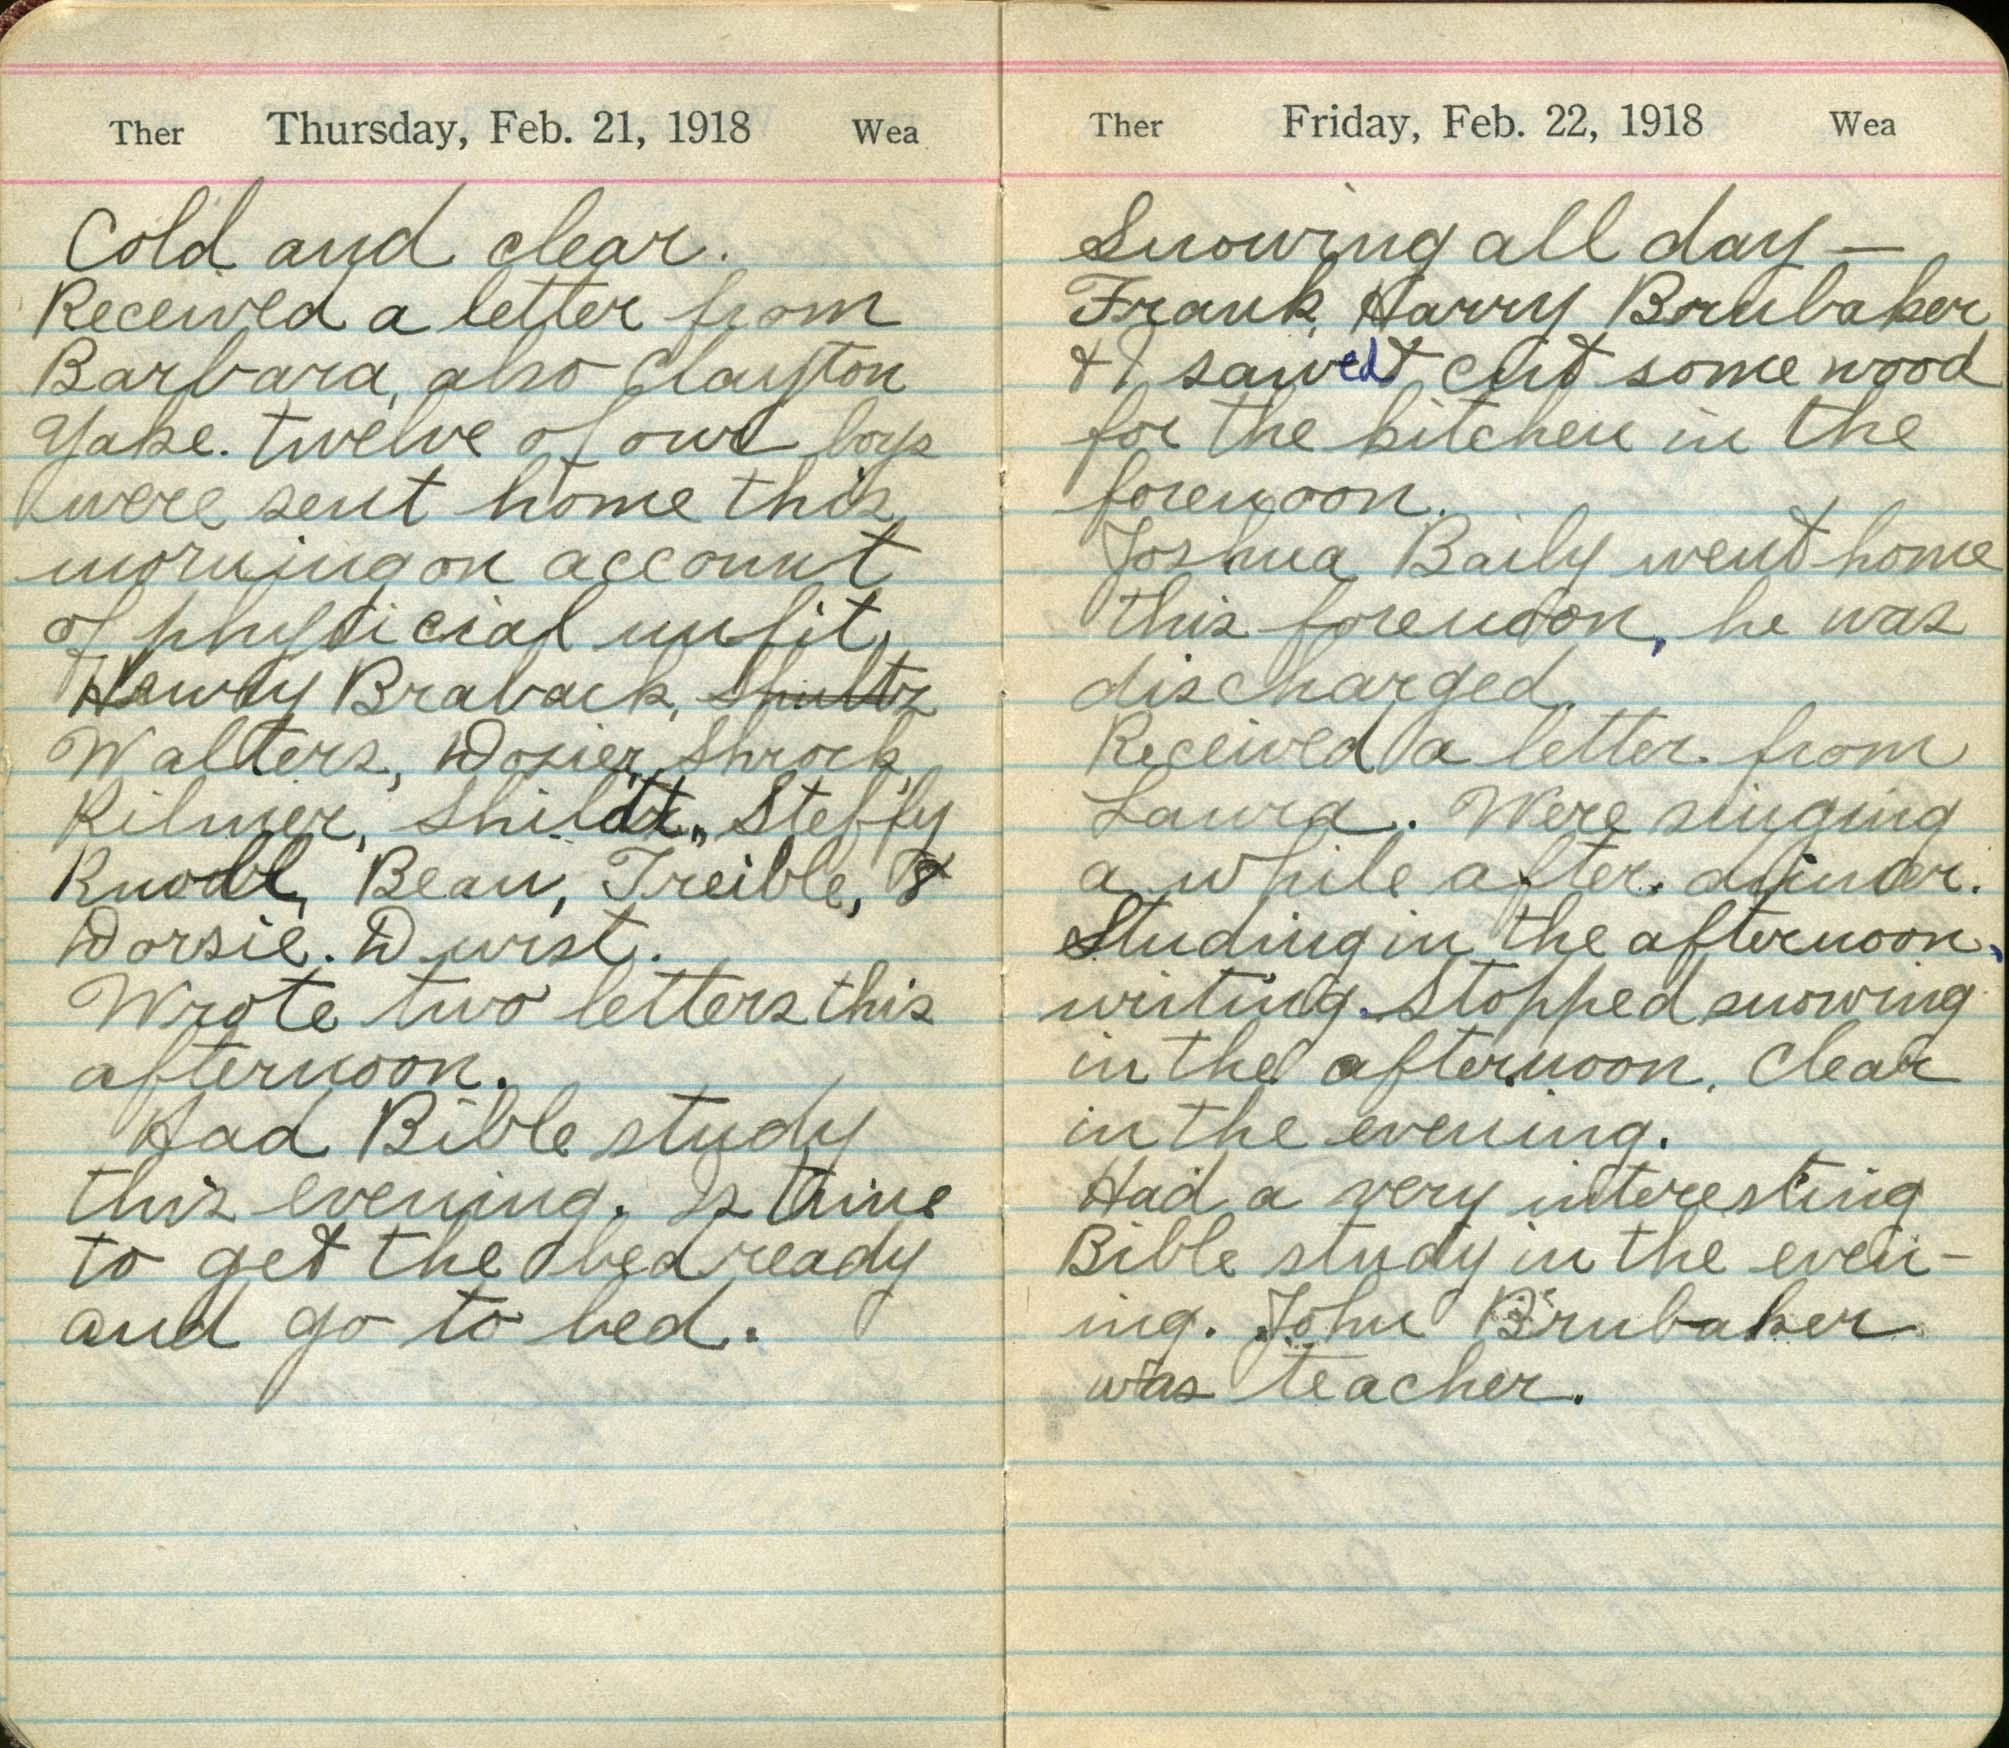 Ther Thursday, Feb. 21, 1918 Wea
Cold and clear.
Received a letter from
Barbara, also Clayton
Yake. twelve of our boys
were sent home this
morning on account
of physicial unfit,
Henry Braback, Shultz
Walters, Dosier, Shrock,
Rilmer, Shildt, Steffy
Knodl, Bean, Treible, &
Dorsie. Durst.
Wrote two letters this
afternoon.
Had Bible study
this evening. Is time
to get the bed ready
and go to bed.
Ther Friday, Feb. 22, 1918 Wea
Snowing all day —
Frank, Harry Brubaker
& I sawed & cut some wood
for the kitchen in the
forenoon.
Joshua Baily went home
this forenoon, he was
discharged.
Received a letter from
Laura. Were singing
a while after dinner.
Studing in the afternoon,
writing. Stopped snowing
in the afternoon. Clear
in the evening.
Had a very interesting
Bible study in the even-
ing. John Brubaker
was teacher.